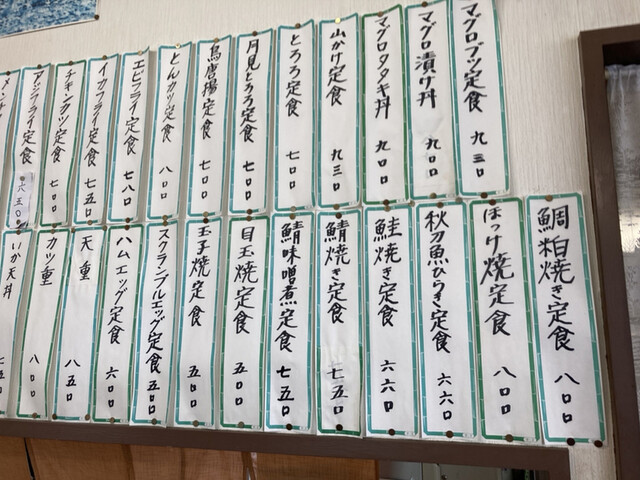 マグロブツ定食 九三〇
マグロ漬け丼 九〇〇
マグロタタキ丼 九〇〇
山かけ定食 九三〇
とろろ定食 七〇〇
月見とろろ定食 七〇〇
鳥唐揚定食 七〇〇
とんカツ定食 八〇〇
エビフライ定食 七八〇
イカフライ定食 七五〇
チキンカツ定食 七〇〇
アジフライ定食 六五〇
鯛粕焼き定食 八〇〇
ほっけ焼定食 八〇〇
秋刀魚ひらき定食 六六〇
鮭焼き定食 六六〇
鯖焼き定食 七五〇
鯖味噌煮定食 七五〇
目玉焼定食 五〇〇
玉子焼定食 五〇〇
スクランブルエッグ定食 五〇〇
ハムエッグ定食 六〇〇
天重 八五〇
カツ重 八〇〇
いか天丼 七五〇